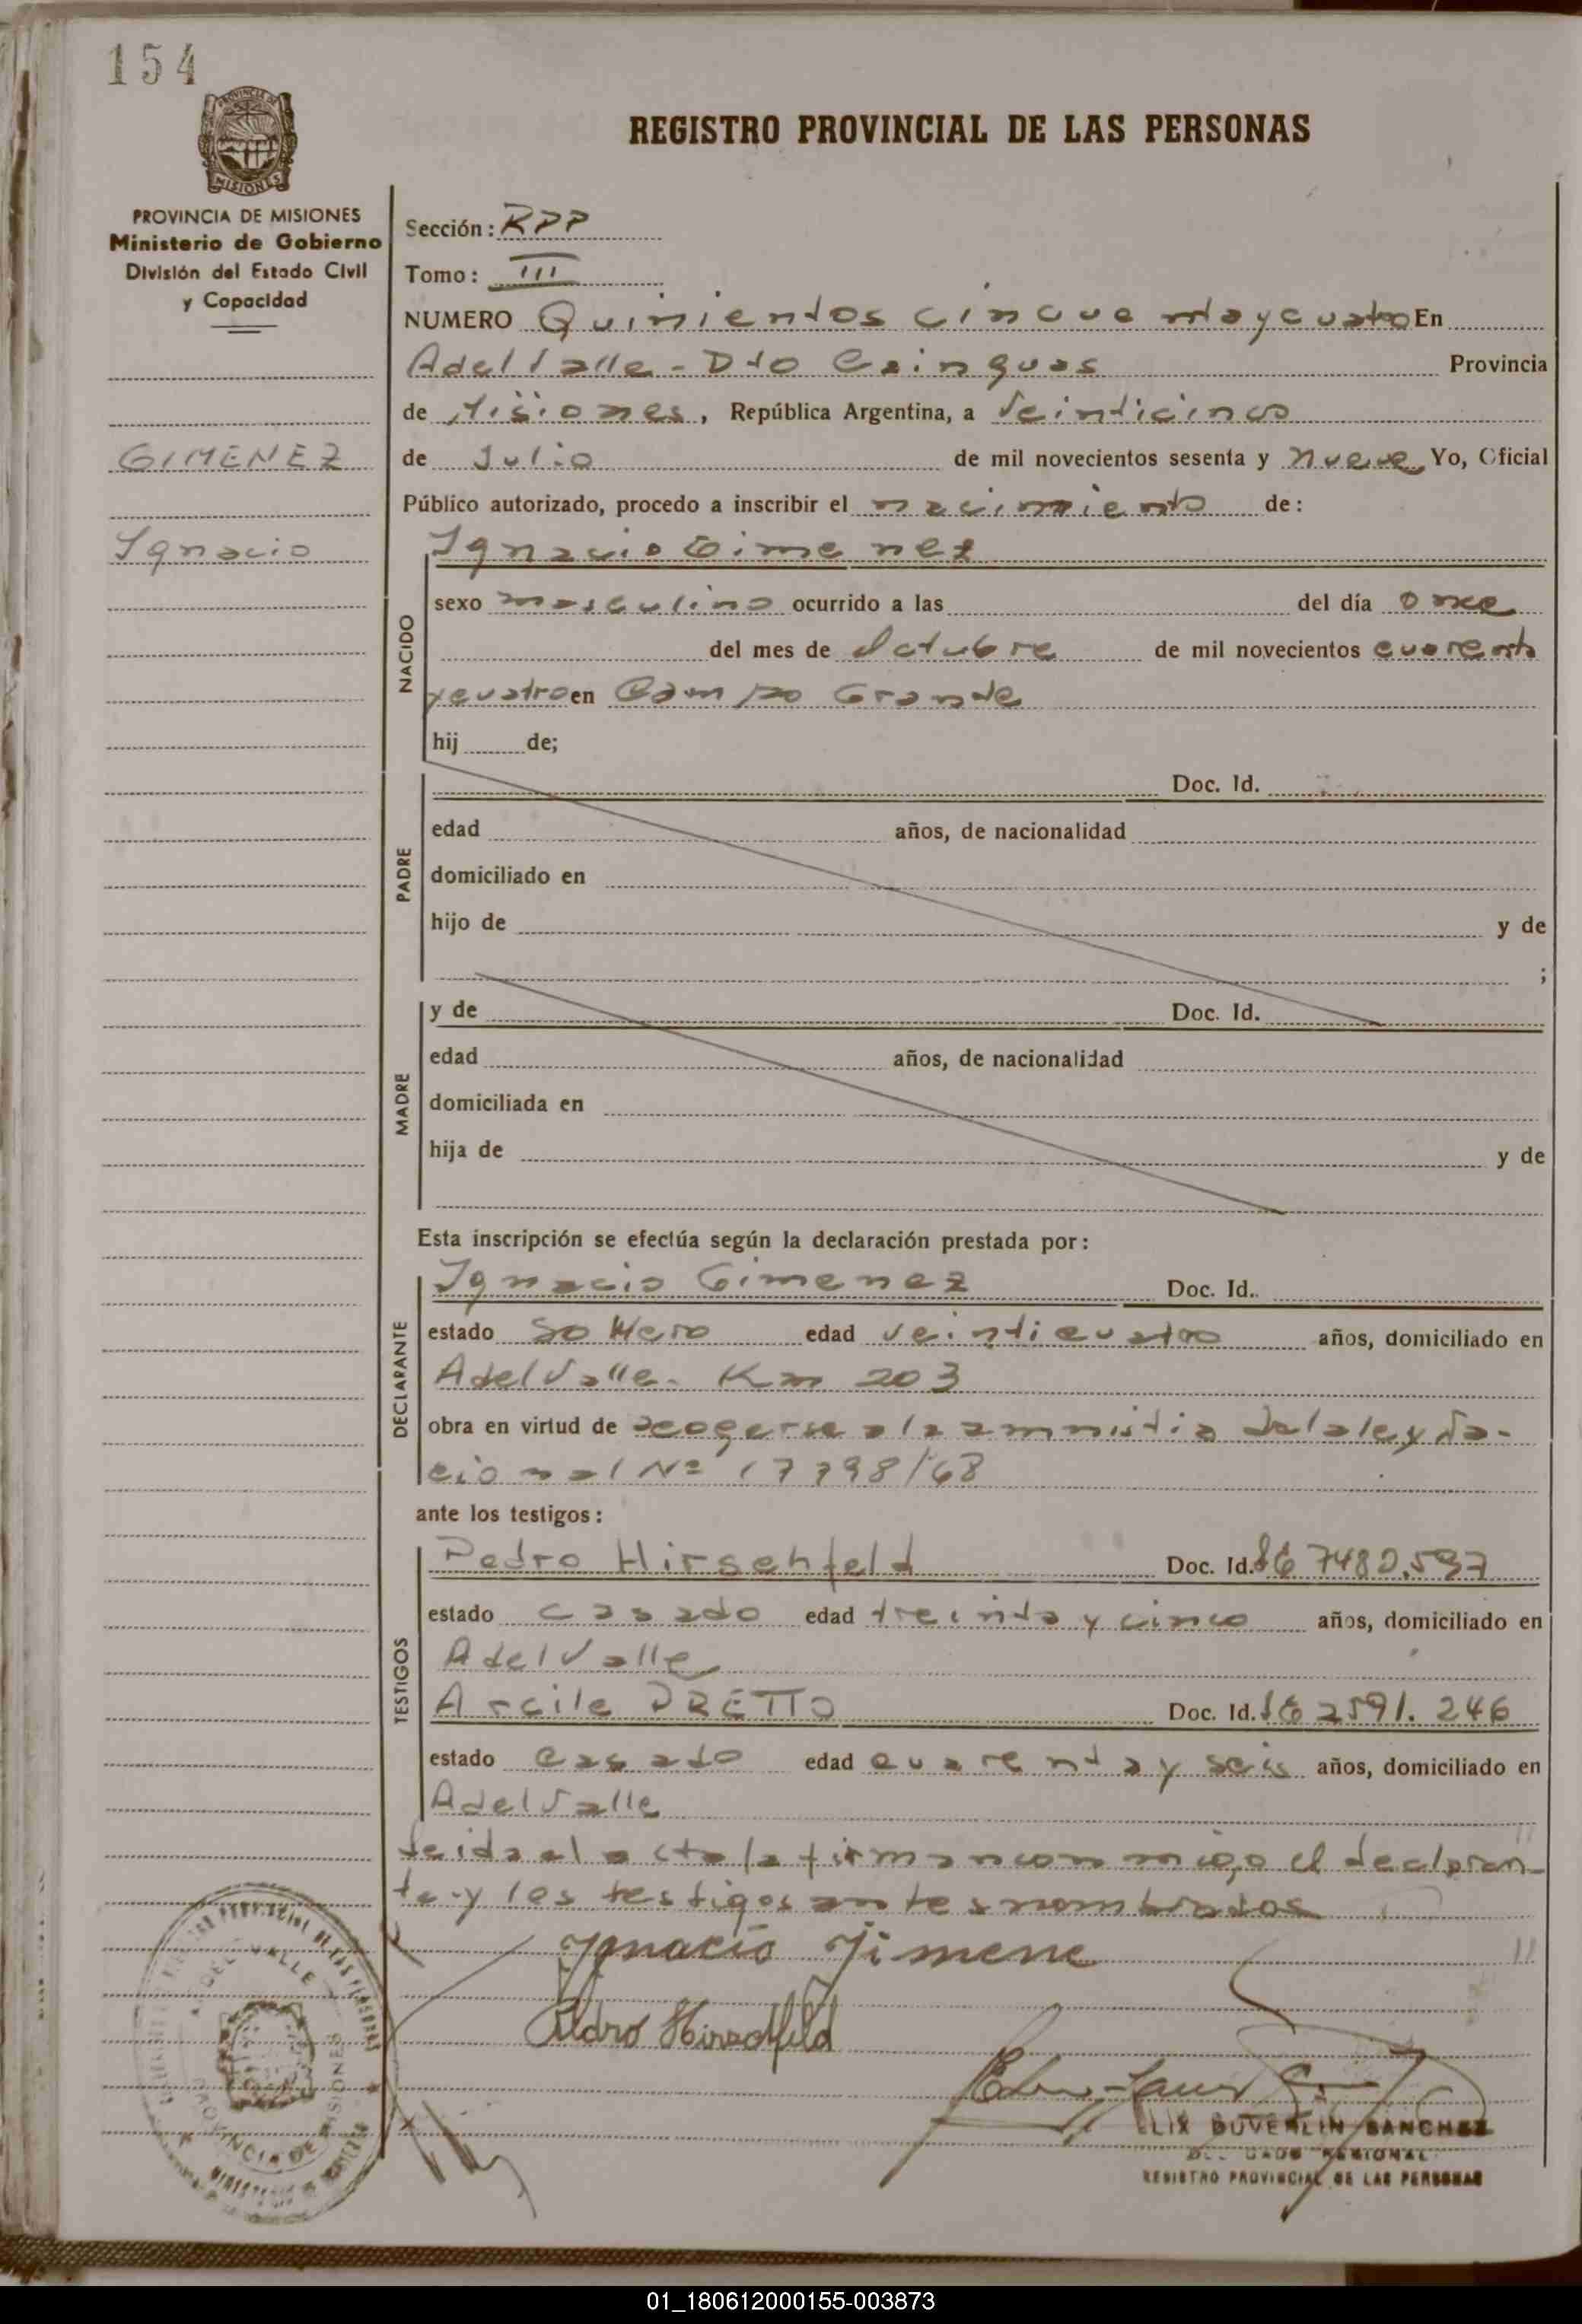 154
PROVINCIA DE MISIONES
Ministerio de Gobierno
División del Estado Civil
y Capacidad
GIMENEZ
Ignacio
REGISTRO PROVINCIAL DE LAS PERSONAS
Sección: RPP
Tomo: III
NUMERO Quinientos cincuenta y cuatro En
Adel Valle - Dto Cainguas Provincia
de Misiones, República Argentina, a Veinticinco
de Julio de mil novecientos sesenta y nueve Yo, Oficial
Público autorizado, procedo a inscribir el nacimiento de:
NACIDO
Ignacio Gimenez
sexo masculino ocurrido a las del día once
del mes de Octubre de mil novecientos cuarenta
y cuatro en Campo Grande
hij de;
PADRE
Doc. Id.
edad años, de nacionalidad
domiciliado en
hijo de y de
;
MADRE
y de Doc. Id.
edad años, de nacionalidad
domiciliada en
hija de y de
Esta inscripción se efectúa según la declaración prestada por:
DECLARANTE
Ignacio Gimenez Doc. Id..
estado Soltero edad veinticuatro años, domiciliado en
Adel Valle - Km 203
obra en virtud de acogerse a la amnistia de la ley Na-
cional Nº 17798/68
ante los testigos:
TESTIGOS
Pedro Hirschfeld Doc. Id. 7480.597
estado casado edad treinta y cinco años, domiciliado en
Adel Valle
Arcile PRETTO Doc. Id. 2591.246
estado casado edad cuarenta y seis años, domiciliado en
Adel Valle
Leida el acta la firman conmigo el declaran-
te y los testigos antes nombrados
Ignacio Jimene
Pedro Hirschfeld
LIX DUVERLIN SANCHEZ
REGIONAL
REGISTRO PROVINCIAL DE LAS PERSONAS
DEL VALLE
PROVINCIA DE MISIONES
01_180612000155-003873